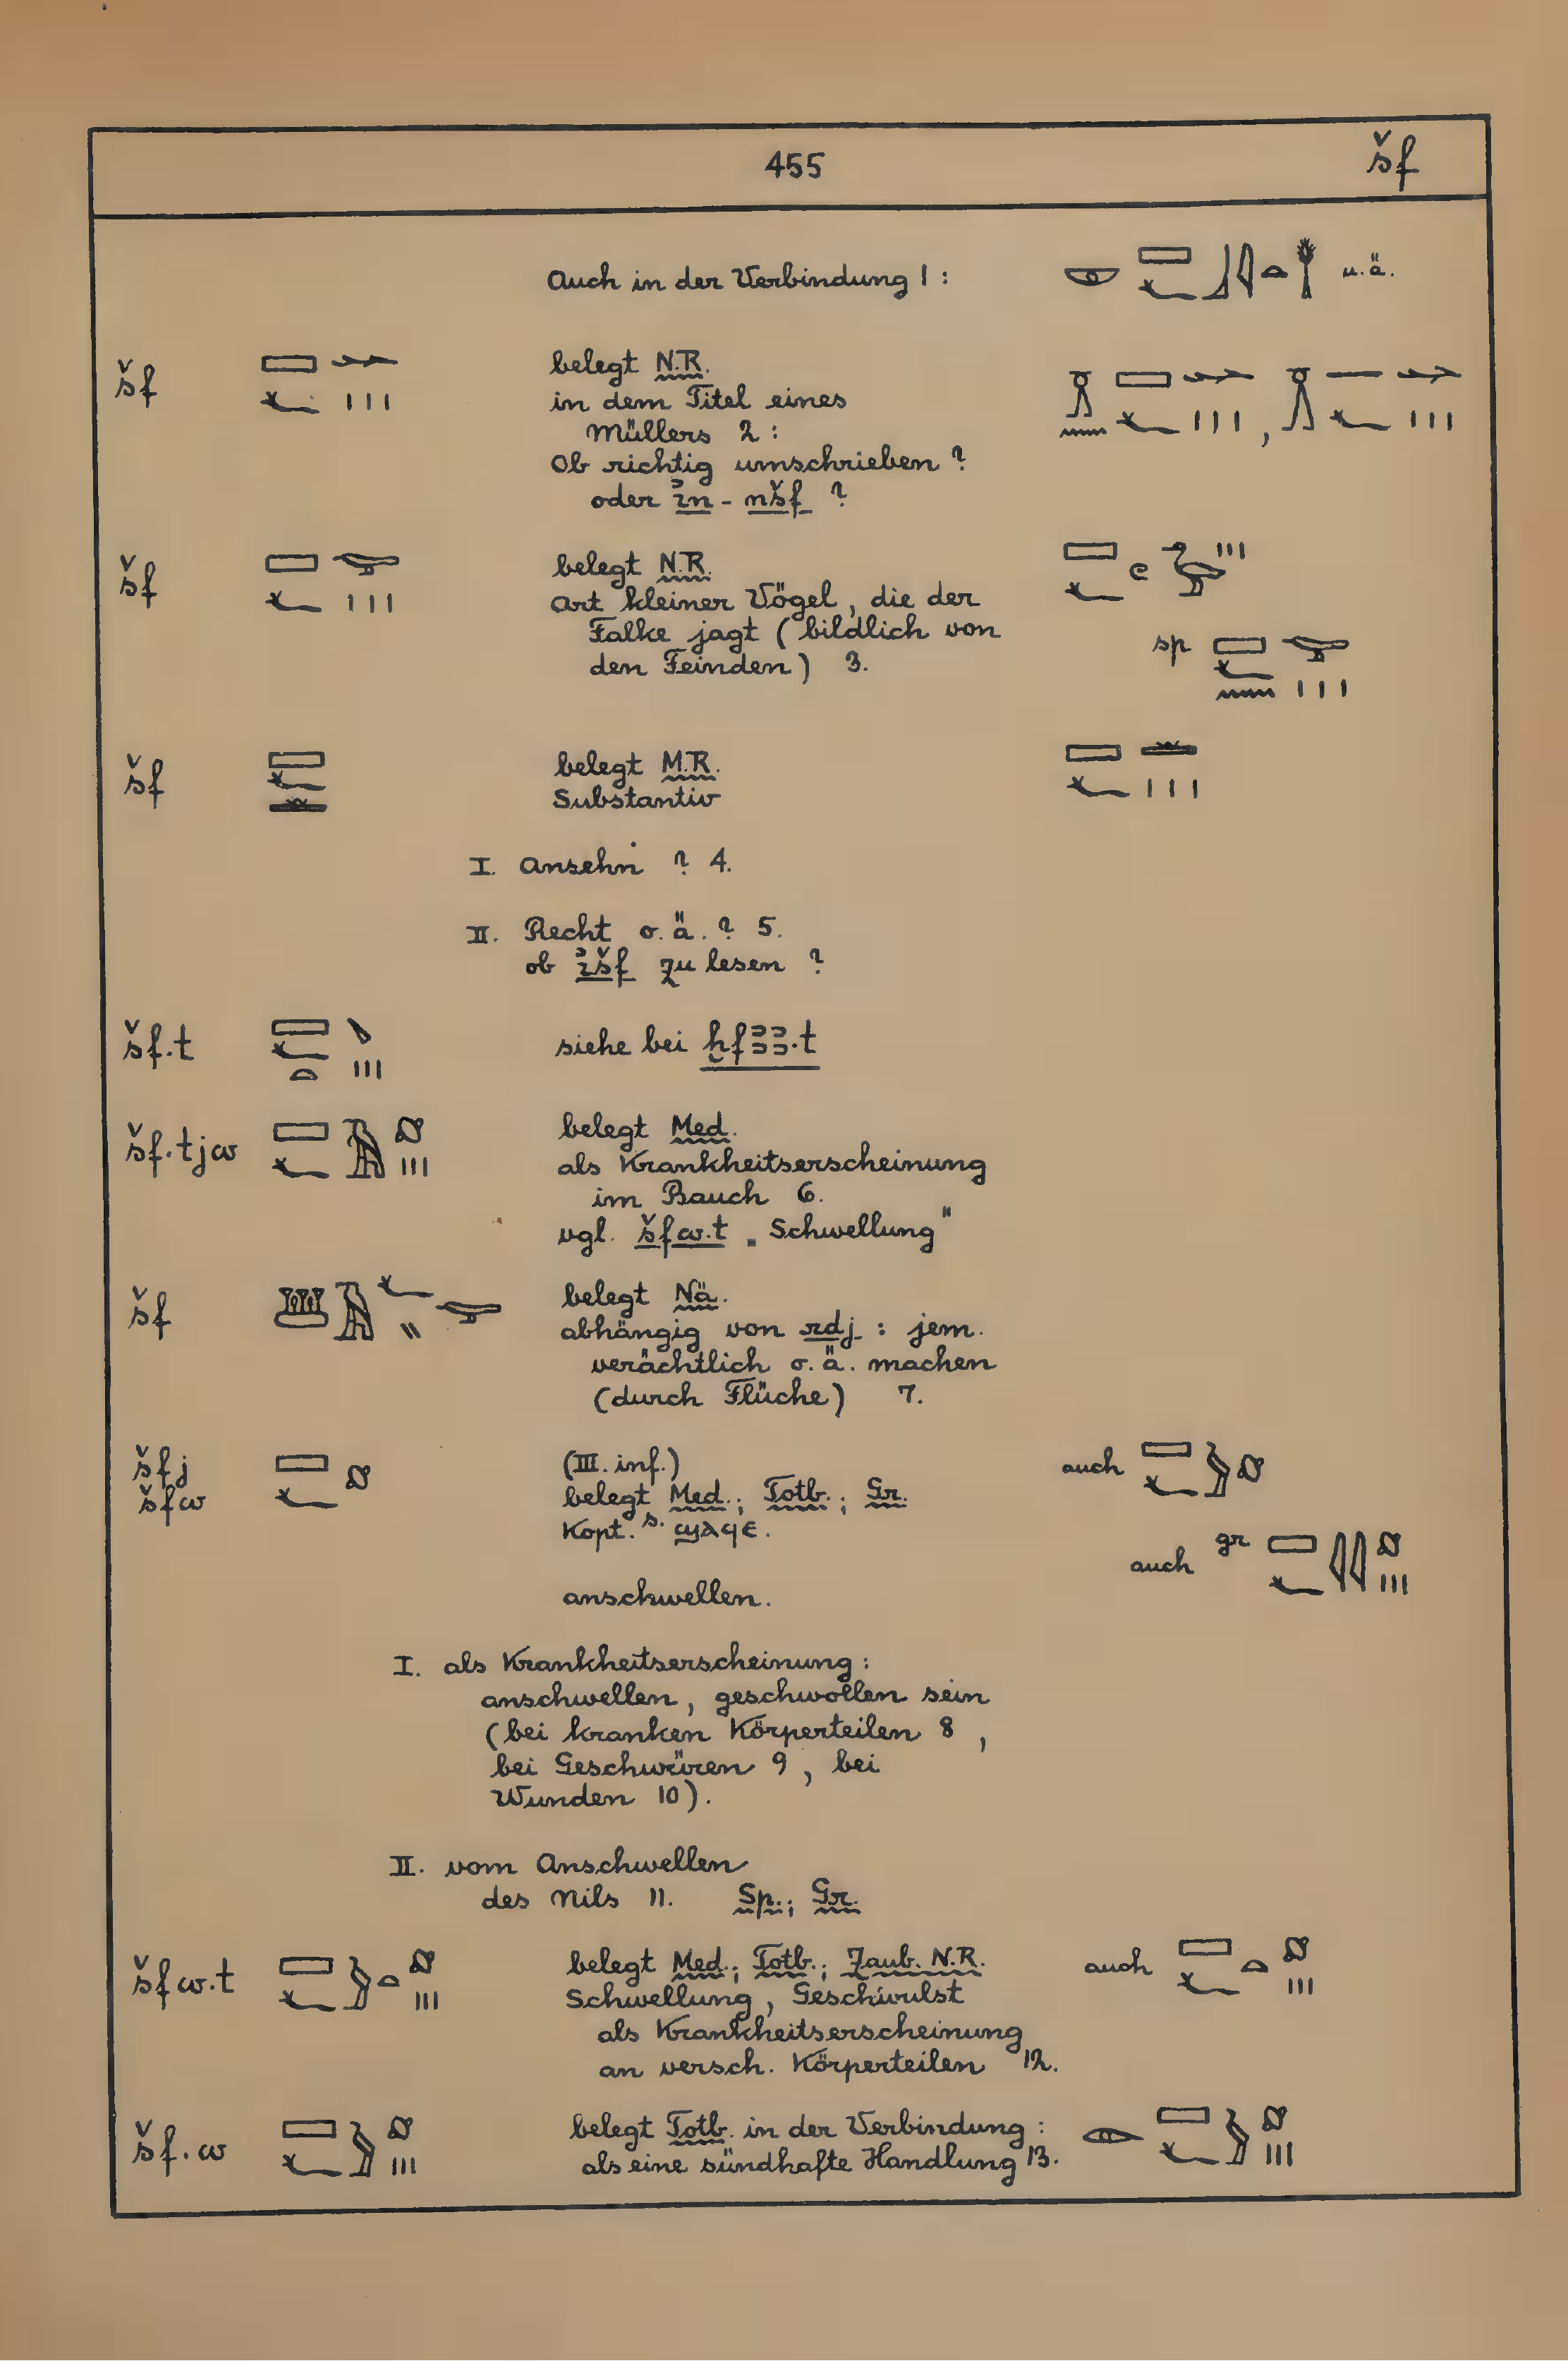 455 šf
Auch in der Verbindung 1 : u. ä.
šf belegt N.R.
in dem Titel eines
Müllers 2 :
Ob richtig umschrieben ?
oder ꞽn - nšf ?
šf belegt N.R.
Art kleiner Vögel, die der
Falke jagt (bildlich von
den Feinden) 3.
sp
šf belegt M.R.
Substantiv
I. Ansehn ? 4.
II. Recht o. ä. ? 5.
ob ꞽšf zu lesen ?
šf.t siehe bei ḫfꜣꜣ.t
šf.tjw belegt Med.
als Krankheitserscheinung
im Bauch 6.
vgl. šfw.t „Schwellung"
šf belegt Nä.
abhängig von rdj : jem.
verächtlich o. ä. machen
(durch Flüche) 7.
šfj (III. inf.) auch
šfw belegt Med.; Totb.; Gr.
Kopt. s. ϣⲁϥⲉ.
auch gr
anschwellen.
I. als Krankheitserscheinung :
anschwellen, geschwollen sein
(bei kranken Körperteilen 8 ,
bei Geschwüren 9 , bei
Wunden 10).
II. vom Anschwellen
des Nils 11. Sp.; Gr.
šfw.t belegt Med.; Totb.; Zaub. N.R. auch
Schwellung, Geschwulst
als Krankheitserscheinung
an versch. Körperteilen 12.
šf.w belegt Totb. in der Verbindung :
als eine sündhafte Handlung 13.